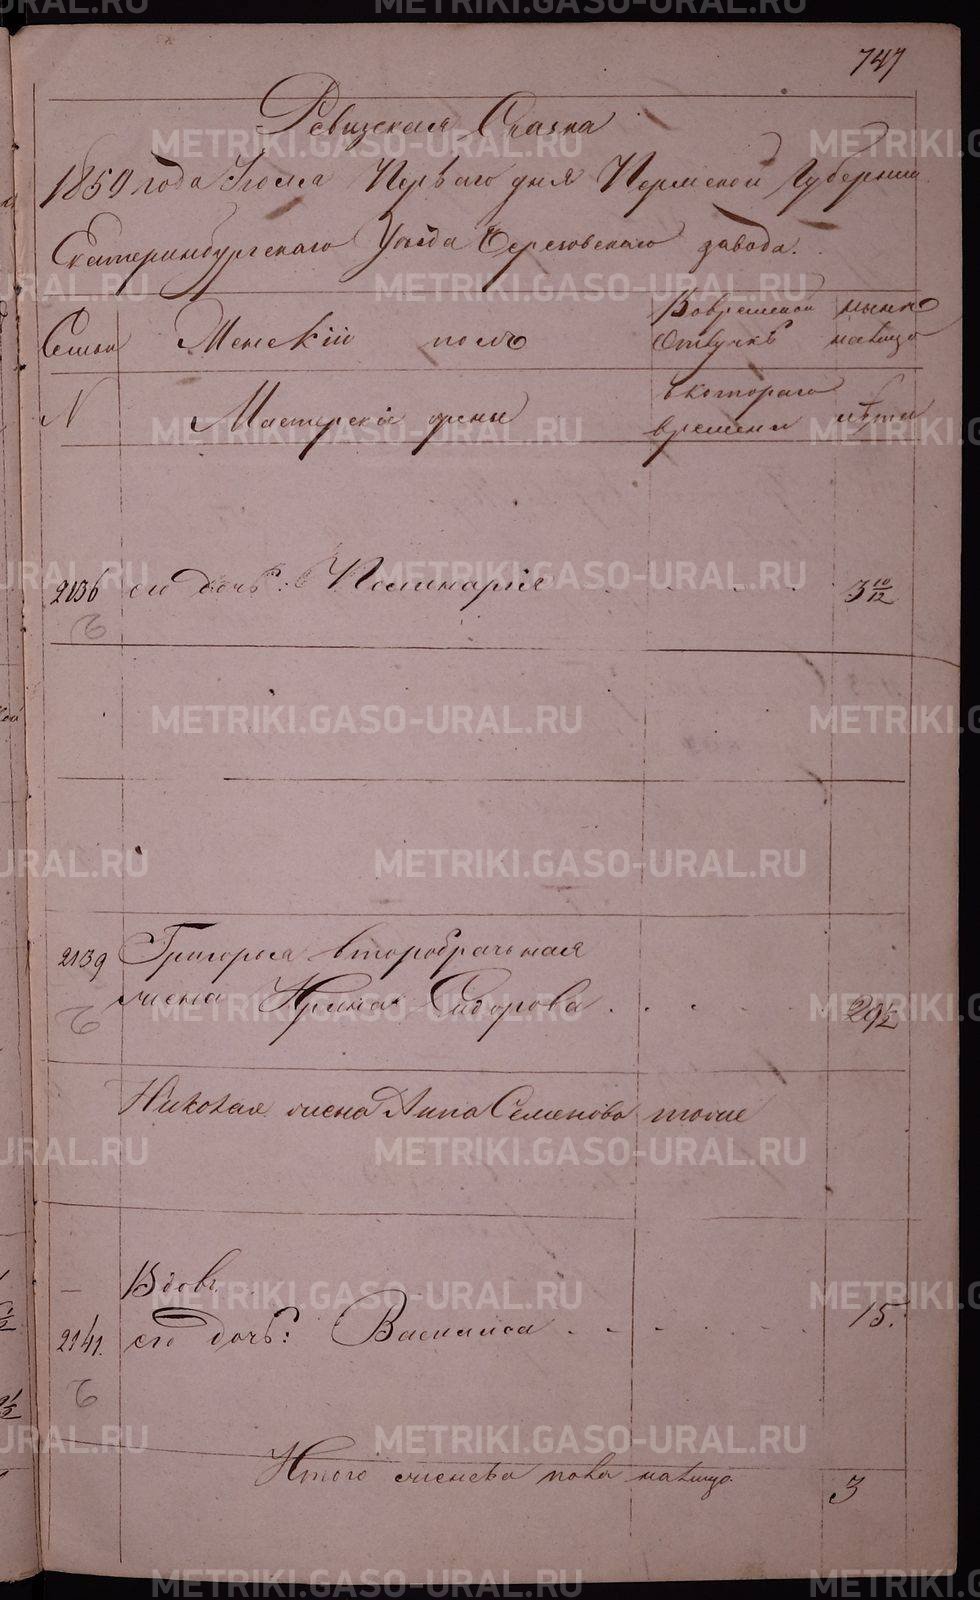 747
Ревизская Сказка
1859 года Іюля Перваго дня Пермской Губерніи
Екатеринбургскаго Уезда Березовскаго завода.
Семьи
Женскій полъ
Вовременной
отлучкѣ
ныне
налицо
N
Мастерскія жены
скотораго
времени
лѣта
2136 его дочь: Полинарія 3 10/12
2139 Григорья второбрачьная
жена Ирина Сидорова 29 1/2
Николая жена Анна Семенова тоже
Вдов.
2141. его дочь: Васил­иса 15.
Итого женска пола налицо. 3
METRIKI.GASO-URAL.RU